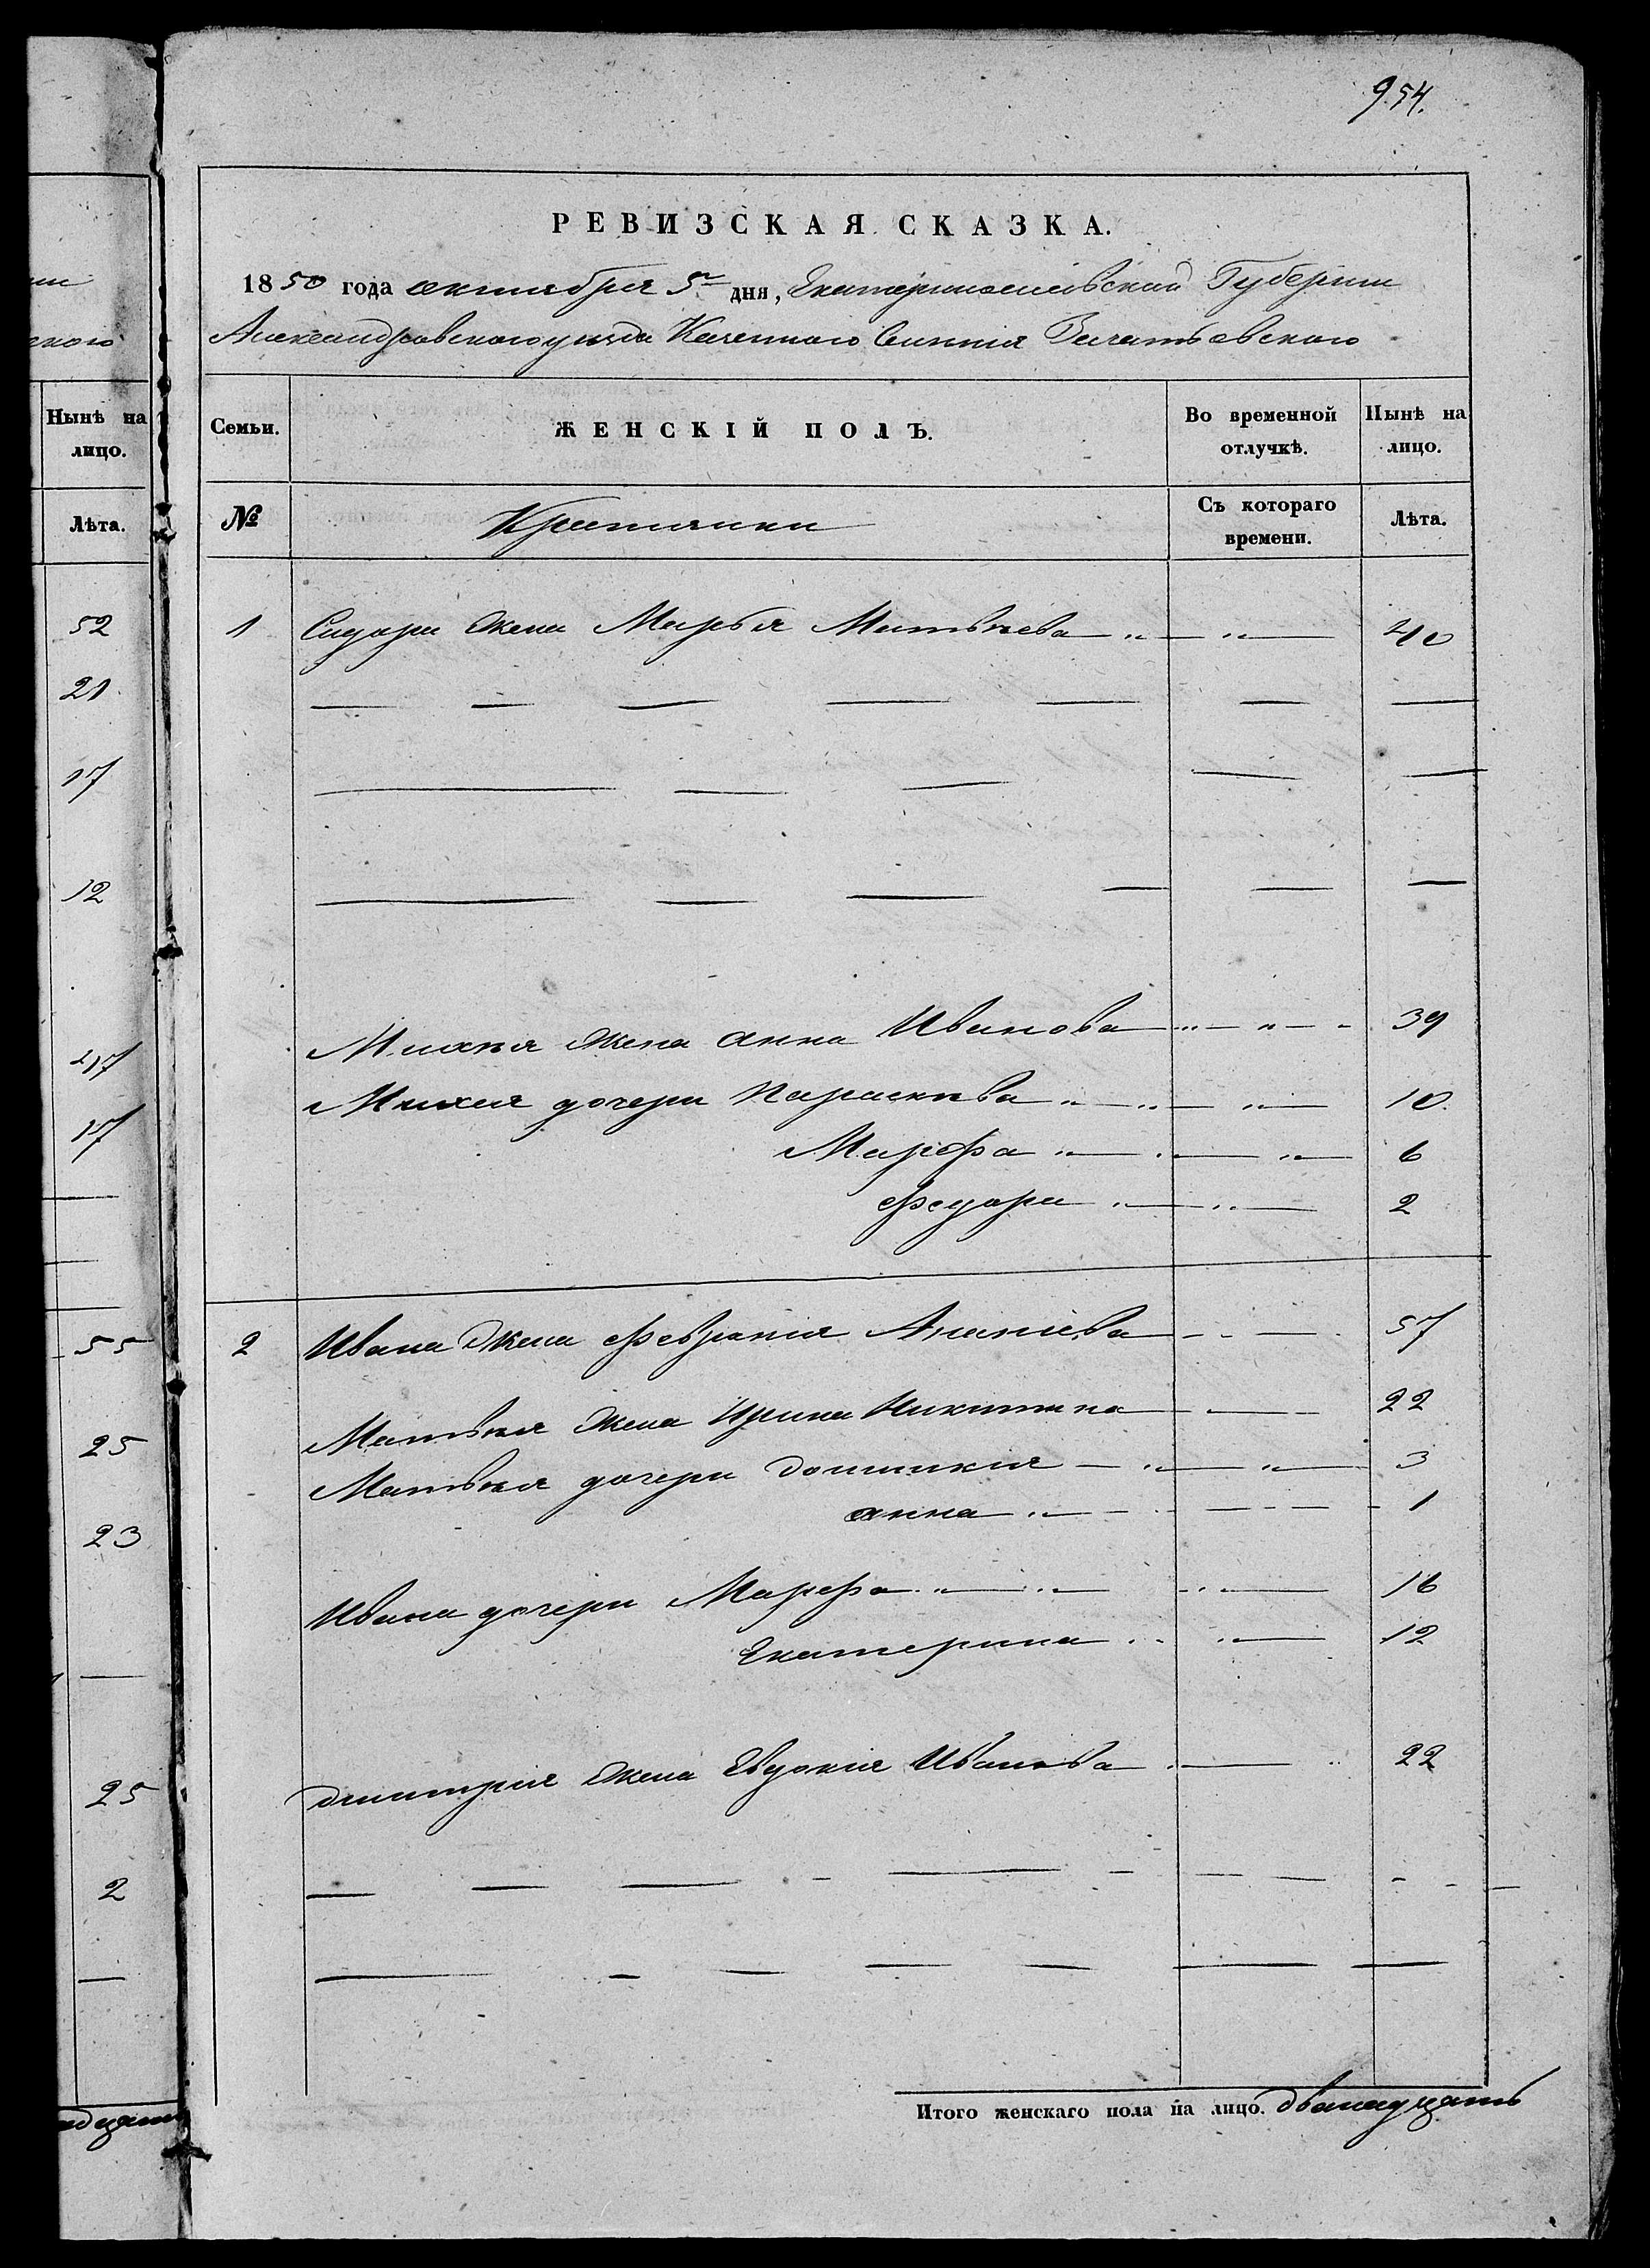 954.
РЕВИЗСКАЯ СКАЗКА.
1850 года октября 5го дня, Екатеринославской Губернии
Александровского уезда Казенного Селения Зачатьевского
Семьи. ЖЕНСКІЙ ПОЛЪ. Во временной отлучкѣ. Нынѣ на лицо.
№ Крестянки Съ котораго времени. Лѣта.
1 Сидора жена Марья Матвѣева 40
Михѣя жена Анна Иванова 39
Михея дочери Параскѣва 10.
Марфа 6
Федора 2
2 Ивана жена Феврония Ананіева 57
Матвѣя жена Ирина Никитина 22
Матвѣя дочери Домникія 3
Анна 1
Ивана дочери Марфа 16
Екатерина 12
Дмитрія жена Евдокія Иванова 22
Итого женскаго пола на лицо. Двенадцать
Нынѣ на лицо.
Лѣта.
52
21
17
12
47
17
55
25
23
25
2